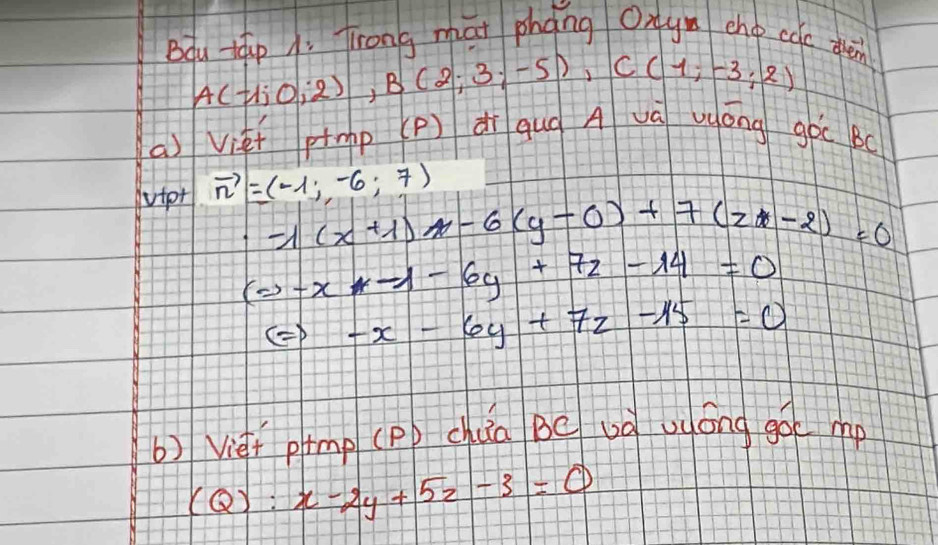 Bài tập 1: Trong mặt phẳng Oxy cho các điểm
A(-1;0;2), B(2;3;-5), C(1;-3;2)
a) Viết ptmp (P) đi qua A và vuông góc BC
vtpt n→ = (-1; -6; 7)
-1(x+1) -6(y-0) + 7(z-2) = 0
(=) -x -1 - 6y + 7z - 14 = 0
(=) -x - 6y + 7z - 15 = 0
b) Viết ptmp (P) chứa BC và vuông góc mp
(Q): x - 2y + 5z - 3 = 0